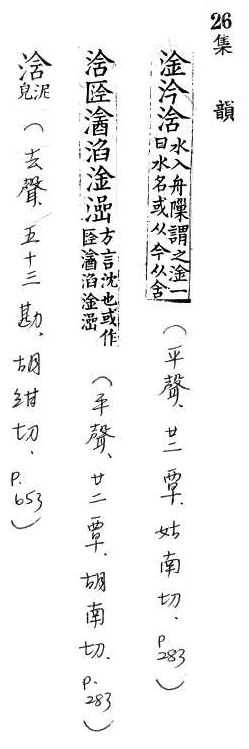 26 集韻
淦汵浛水入舟隟謂之淦一曰水名或从今从含(平聲、廿二覃、姑南切、P.283)
浛𠥴㵅淊淦𣽎方言沈也或作𠥴㵅淊淦𣽎(平聲、廿二覃、胡南切、P.283)
浛泥皃(去聲、五十三勘、胡紺切、P.653)